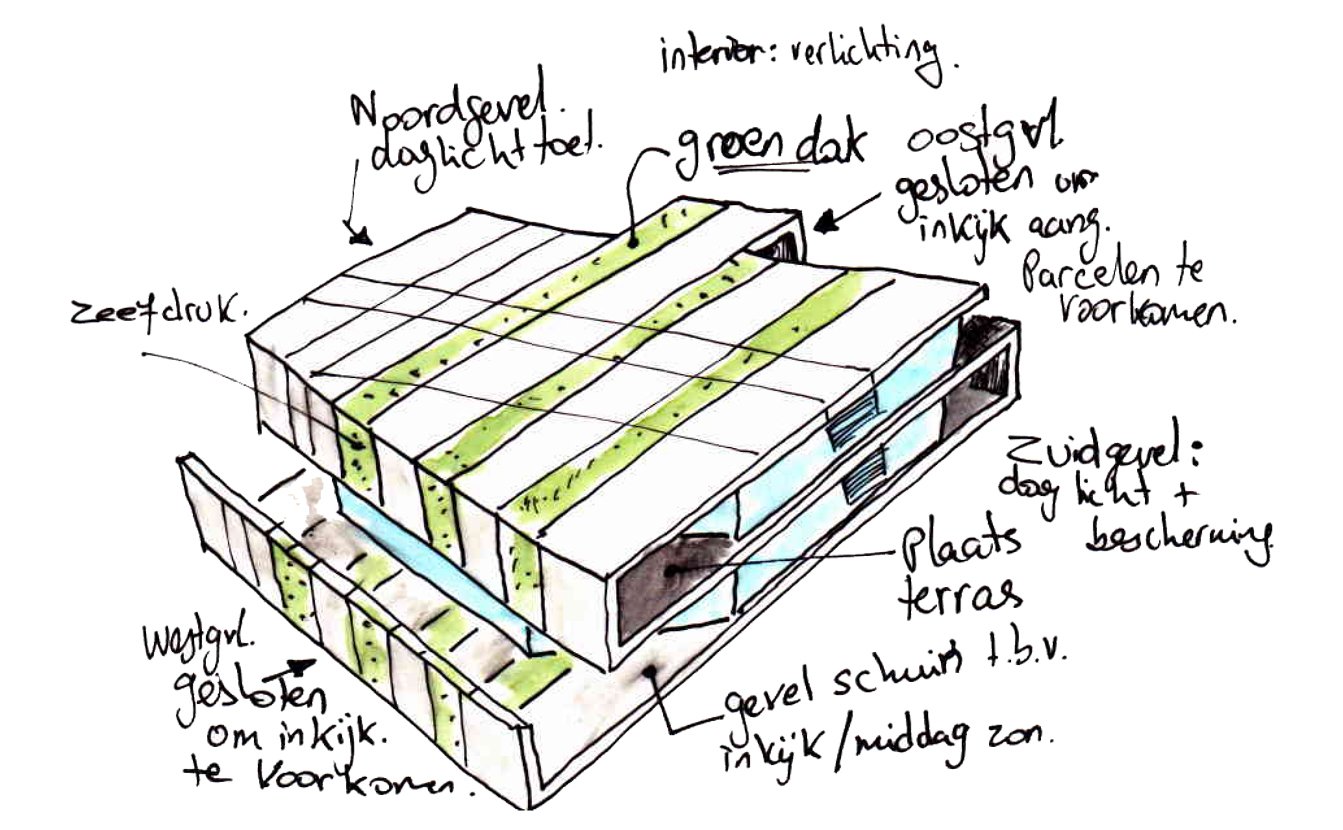 interior: verlichting.
Noordgevel.
daglicht toet.
groen dak
oostgvl.
gesloten om
inkijk aang.
Parcelen te
voorkomen.
zeefdruk.
Zuidgevel:
daglicht +
bescherming
Plaats
terras
Westgvl.
gesloten
om inkijk.
te voorkomen.
gevel schuin t.b.v.
inkijk/middag zon.